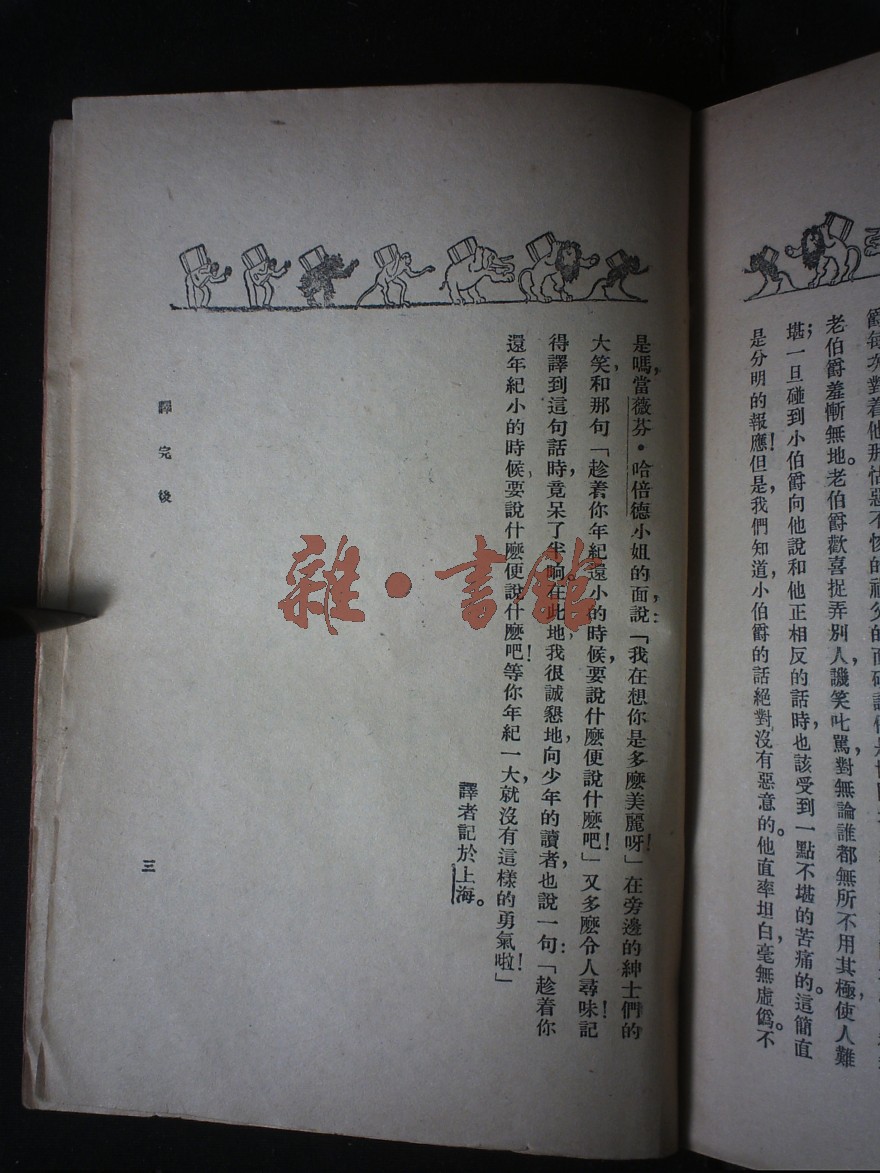 爵每次對着他那怙惡不悛的祖父的面
老伯爵羞慚無地。老伯爵歡喜捉弄別人，譏笑叱罵，對無論誰都無所不用其極，使人難
堪；一旦碰到小伯爵向他說和他正相反的話時，也該受到一點不堪的苦痛的。這簡直
是分明的報應！但是，我們知道，小伯爵的話絕對沒有惡意的。他直率坦白，毫無虛僞。不
是嗎，當薇芬·哈倍德小姐的面，說：「我在想你是多麼美麗呀！」在旁邊的紳士們的
大笑，和那句「趁着你年紀還小的時候，要說什麼便說什麼吧！」又多麼令人尋味！記
得譯到這句話時，竟呆了半晌。在此地，我很誠懇地，向少年的讀者，也說一句：「趁着你
還年紀小的時候，要說什麼便說什麼吧！等你年紀一大，就沒有這樣的勇氣啦！」
譯者記於上海。
譯完後
三
雜·書館